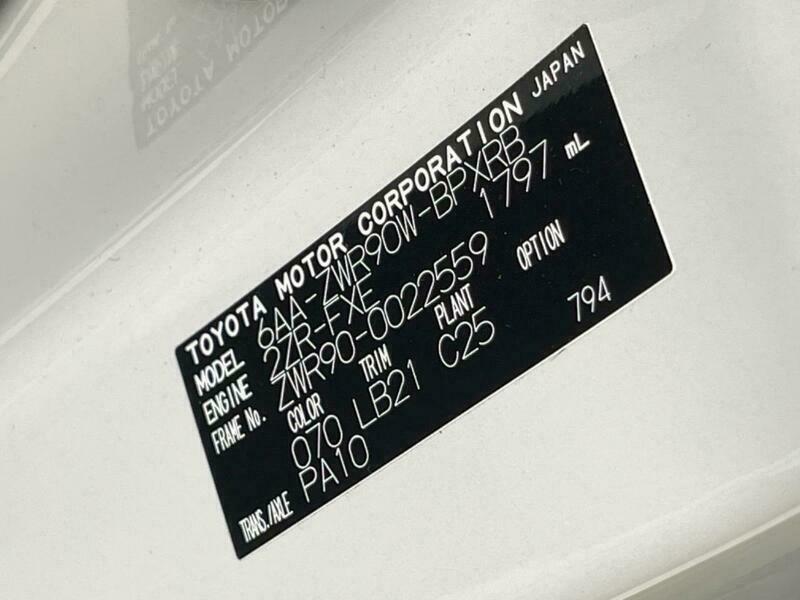 TOYOTA MOTOR CORPORATION JAPAN
MODEL 6AA-ZWR90W-BPXRB
ENGINE 2ZR-FXE 1797 mL
FRAME No. ZWR90-0022559
COLOR TRIM PLANT OPTION
070 LB21 C25 794
TRANS./AXLE PA10